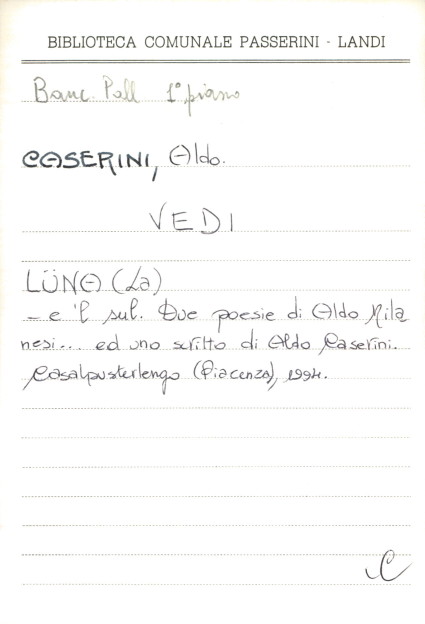 BIBLIOTECA COMUNALE PASSERINI - LANDI
Banc. Pall 1° piano
CASERINI, Aldo.
VEDI
LÜNA (La)
- e 'l sul. Due poesie di Aldo Mila
nesi... ed uno scritto di Aldo Caserini.
Casalpusterlengo (Piacenza), 1994.
C